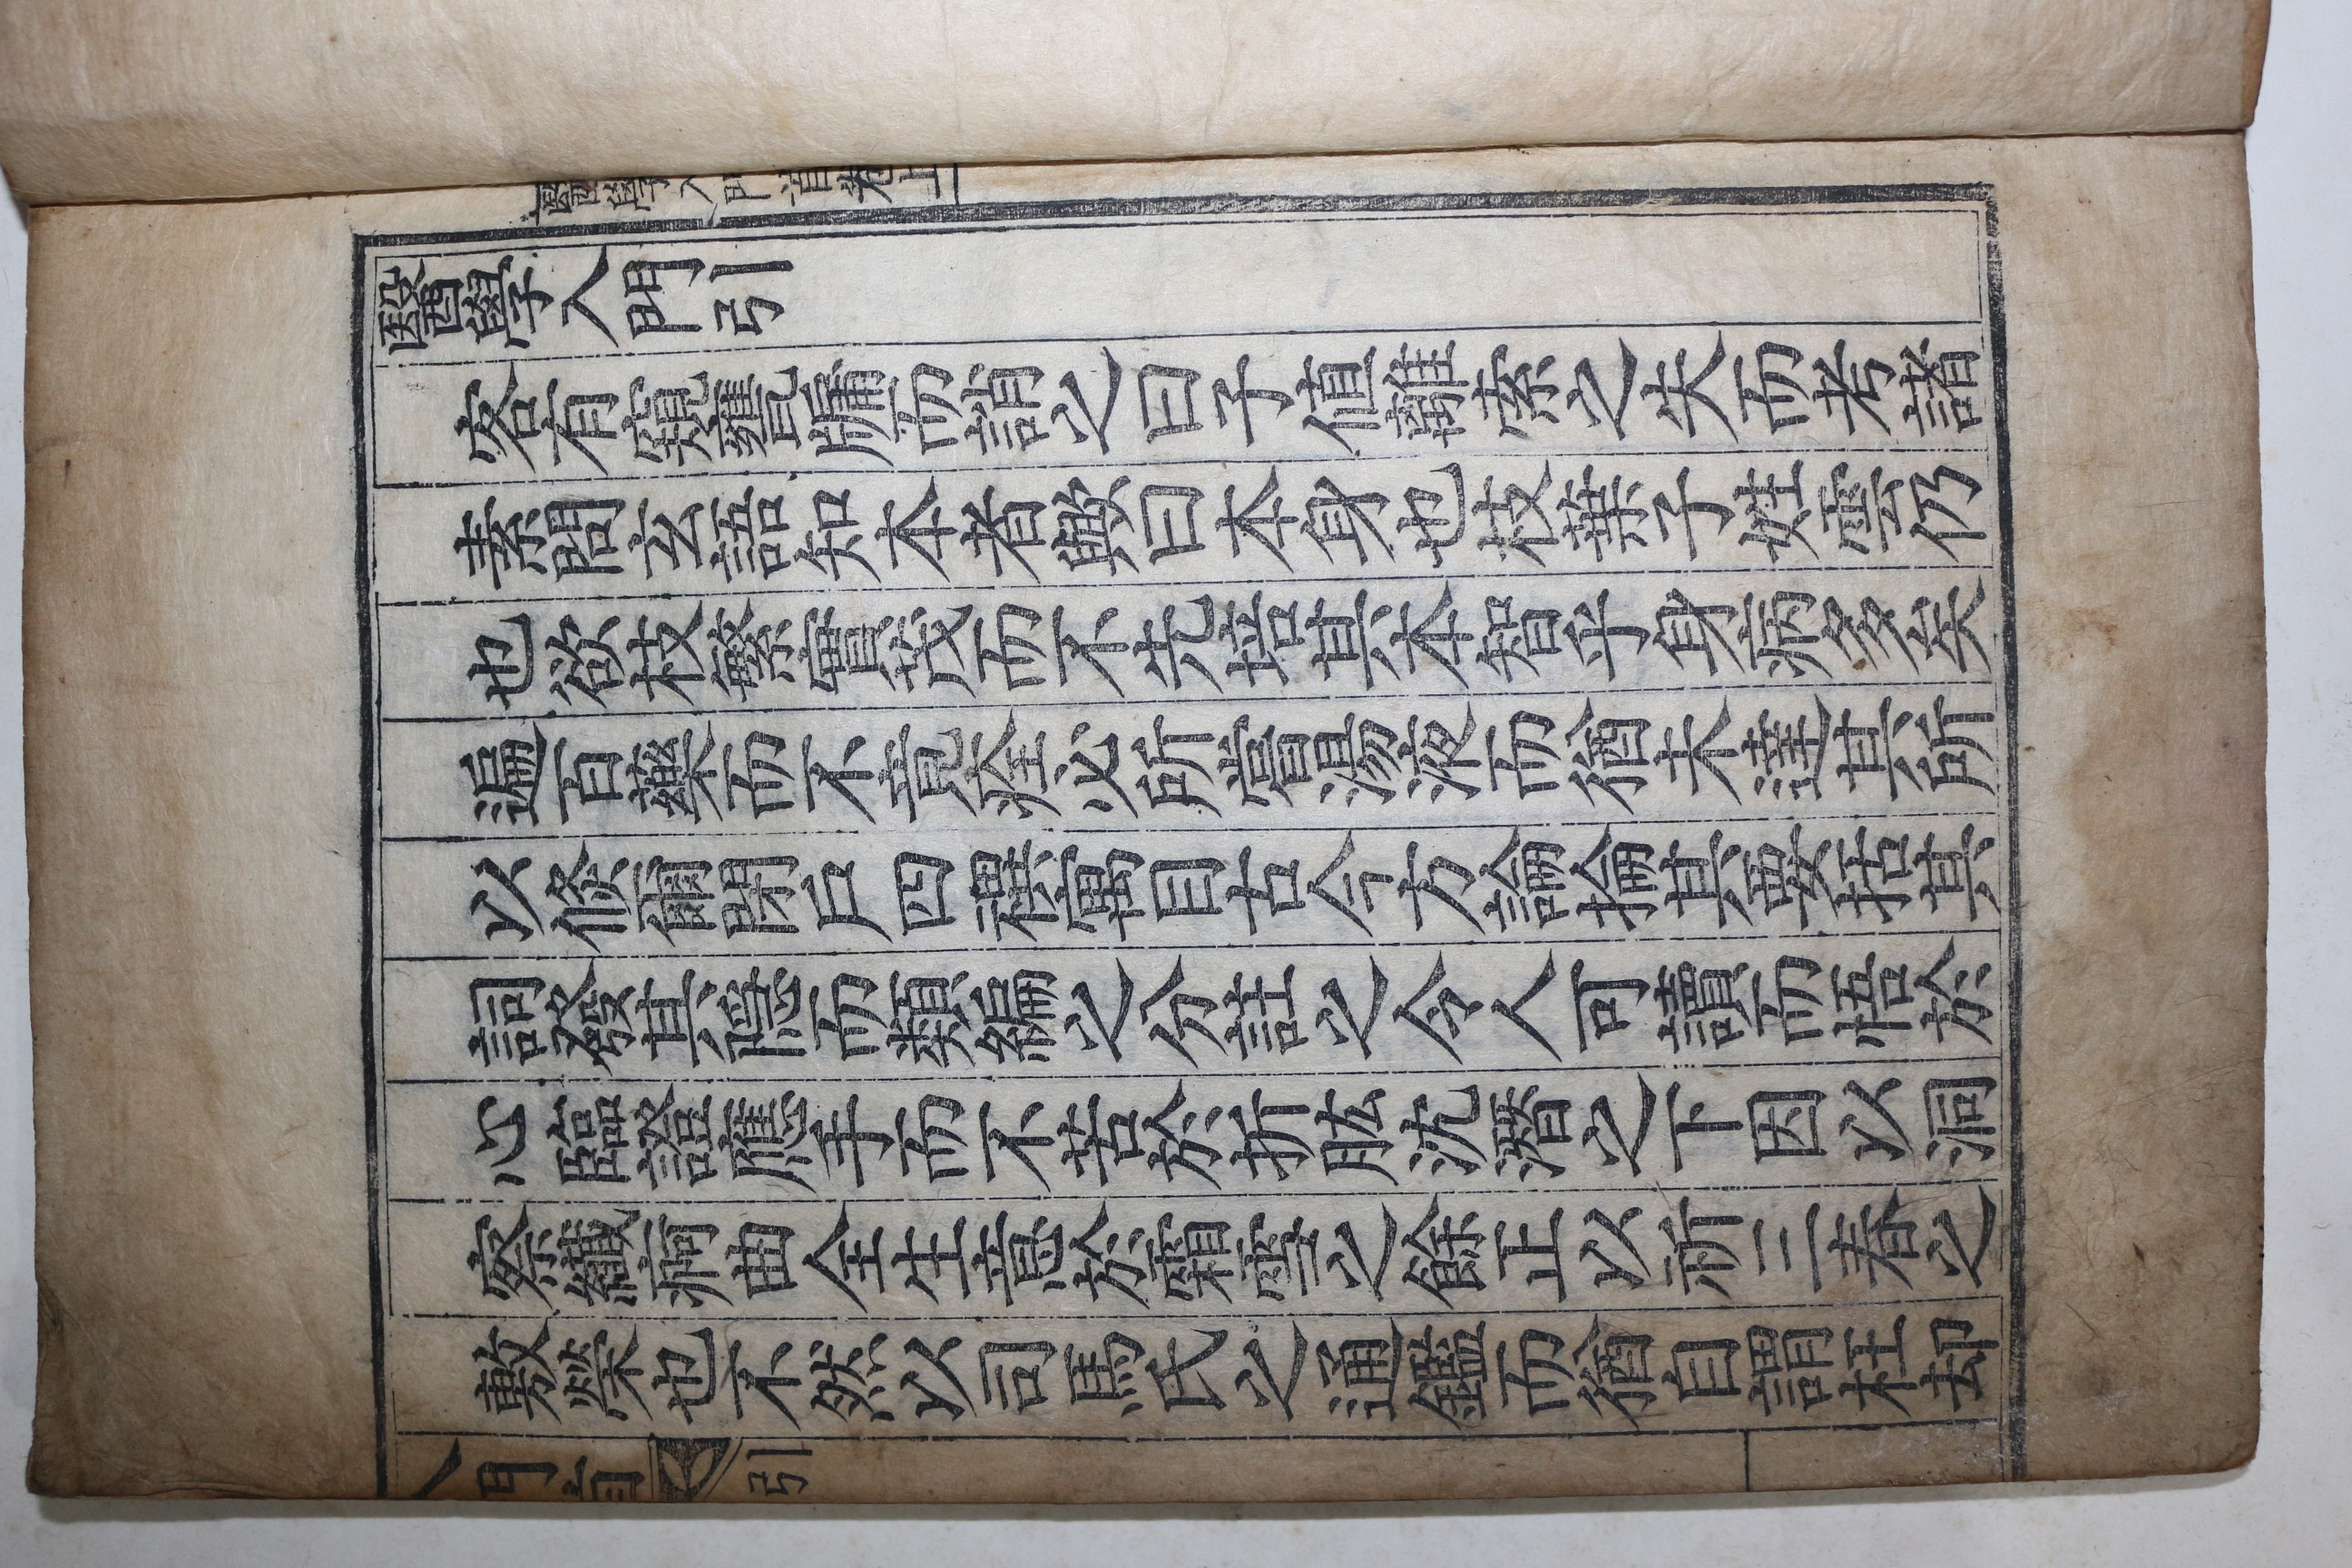 醫學入門首卷上
醫學入門引
客有窺甕牖而誚之曰子值離索之失而考諸
素問玄語知本者歟曰本身也枝葉子姓雲仍
也欲枝繁實茂而不先培其本智乎身病多矣
遍百藥而不竟痊必所嘗湯液而猶未達其所
以倐爾閉戶四禩寓目古今方論掄其要括其
詞發其隱而類編之分註之令人可讀而悟於
心臨證應手而不苦於折肱沈潛之下因以洞
察纖痾曲全生意於霜雪之餘正以祈三春之
敷榮也不然以司馬氏之通鑑而猶自謂枉却
入門首 引